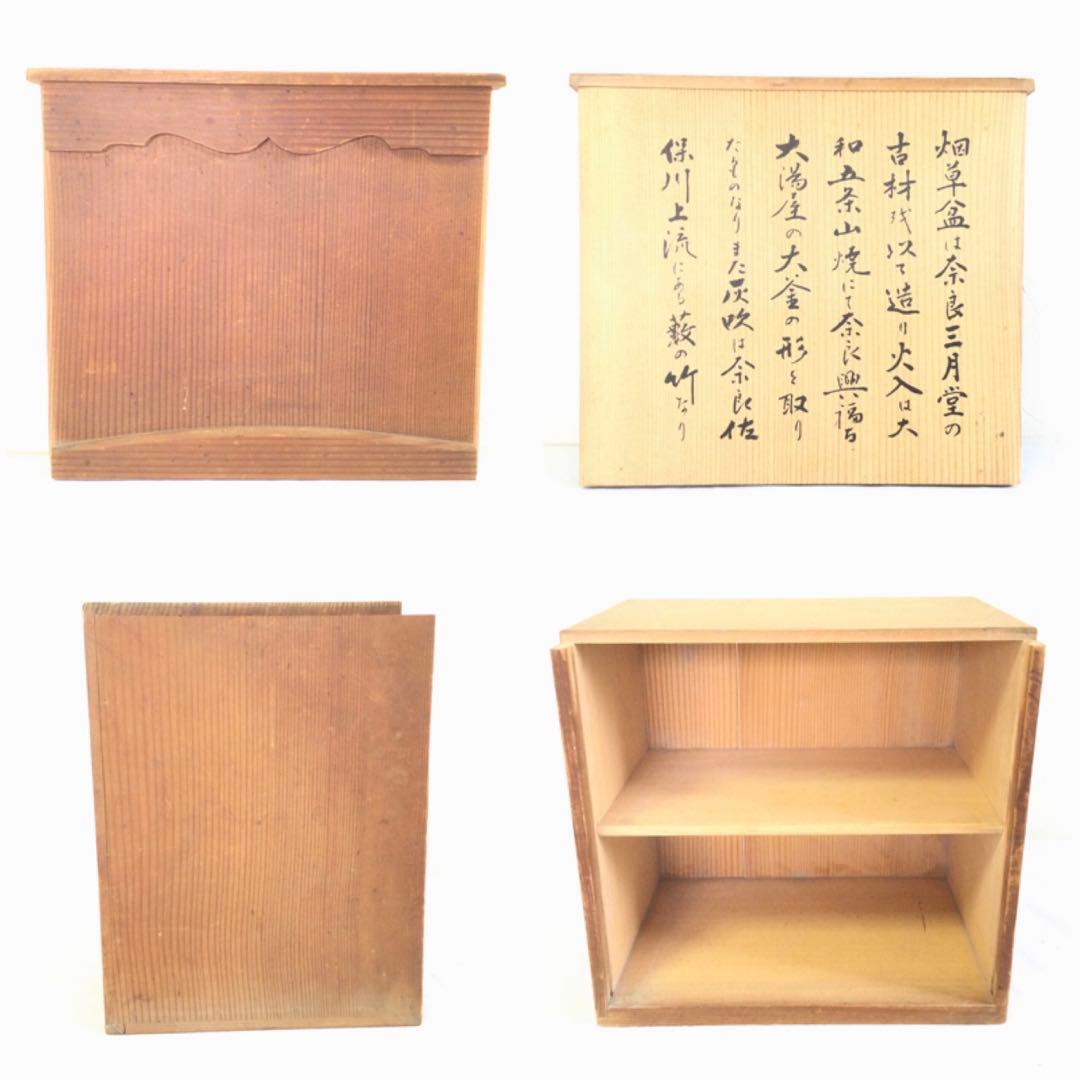 烟草盆は奈良三月堂の
古材を以て造り火入は大
和五条山焼にて奈良興福寺
大湯屋の大釜の形を取り
たるものなりまた灰吹は奈良佐
保川上流にある藪の竹なり